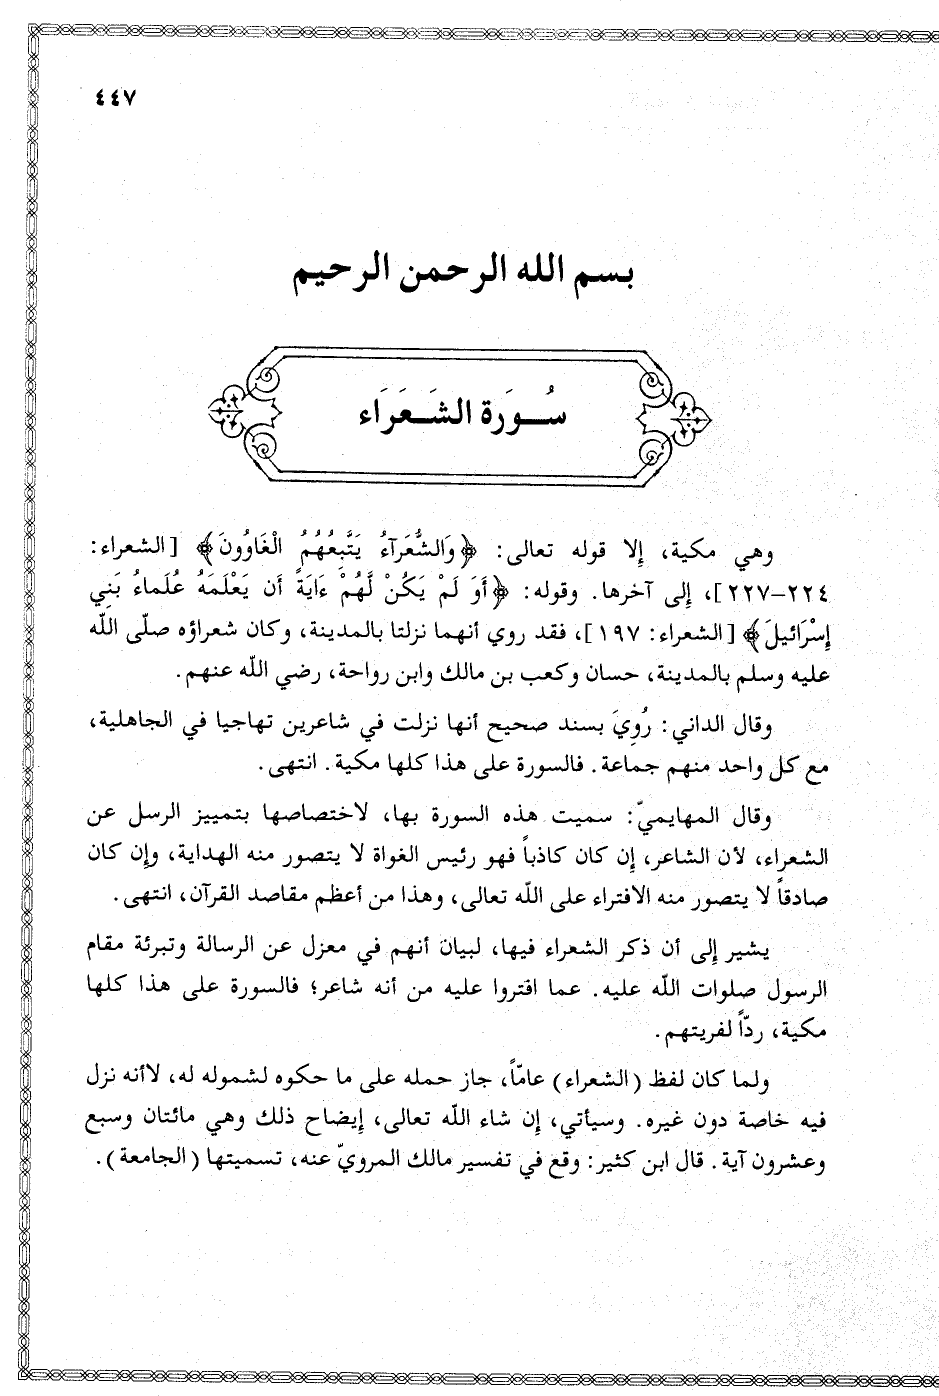 ٤٤٧
بسم الله الرحمن الرحيم
سُــورَة الشَـعَرَاء
وهي مكية، إلا قوله تعالى: ﴿وَالشُّعَرَآءُ يَتَّبِعُهُمُ الْغَاوُونَ﴾ [الشعراء:
٢٢٤-٢٢٧]، إلى آخرها. وقوله: ﴿أَوَ لَمْ يَكُنْ لَّهُمْ ءَايَةً أَن يَعْلَمَهُ عُلَماءُ بَنِي
إِسْرَائيلَ﴾ [الشعراء: ١٩٧]، فقد روي أنهما نزلتا بالمدينة، وكان شعراؤه صلّى اللّه
عليه وسلم بالمدينة، حسان وكعب بن مالك وابن رواحة، رضي اللّه عنهم.
وقال الداني: رُوِيَ بسند صحيح أنها نزلت في شاعرين تهاجيا في الجاهلية،
مع كل واحد منهم جماعة. فالسورة على هذا كلها مكية. انتهى.
وقال المهايميّ: سميت هذه السورة بها، لاختصاصها بتمييز الرسل عن
الشعراء، لأن الشاعر، إن كان كاذباً فهو رئيس الغواة لا يتصور منه الهداية، وإن كان
صادقاً لا يتصور منه الافتراء على اللّه تعالى، وهذا من أعظم مقاصد القرآن، انتهى.
يشير إلى أن ذكر الشعراء فيها، لبيان أنهم في معزل عن الرسالة وتبرئة مقام
الرسول صلوات اللّه عليه. عما افتروا عليه من أنه شاعر؛ فالسورة على هذا كلها
مكية، ردّاً لفريتهم.
ولما كان لفظ (الشعراء) عامّاً، جاز حمله على ما حكوه لشموله له، لاأنه نزل
فيه خاصة دون غيره. وسيأتي، إن شاء اللّه تعالى، إيضاح ذلك وهي مائتان وسبع
وعشرون آية. قال ابن كثير: وقع في تفسير مالك المرويّ عنه، تسميتها (الجامعة).